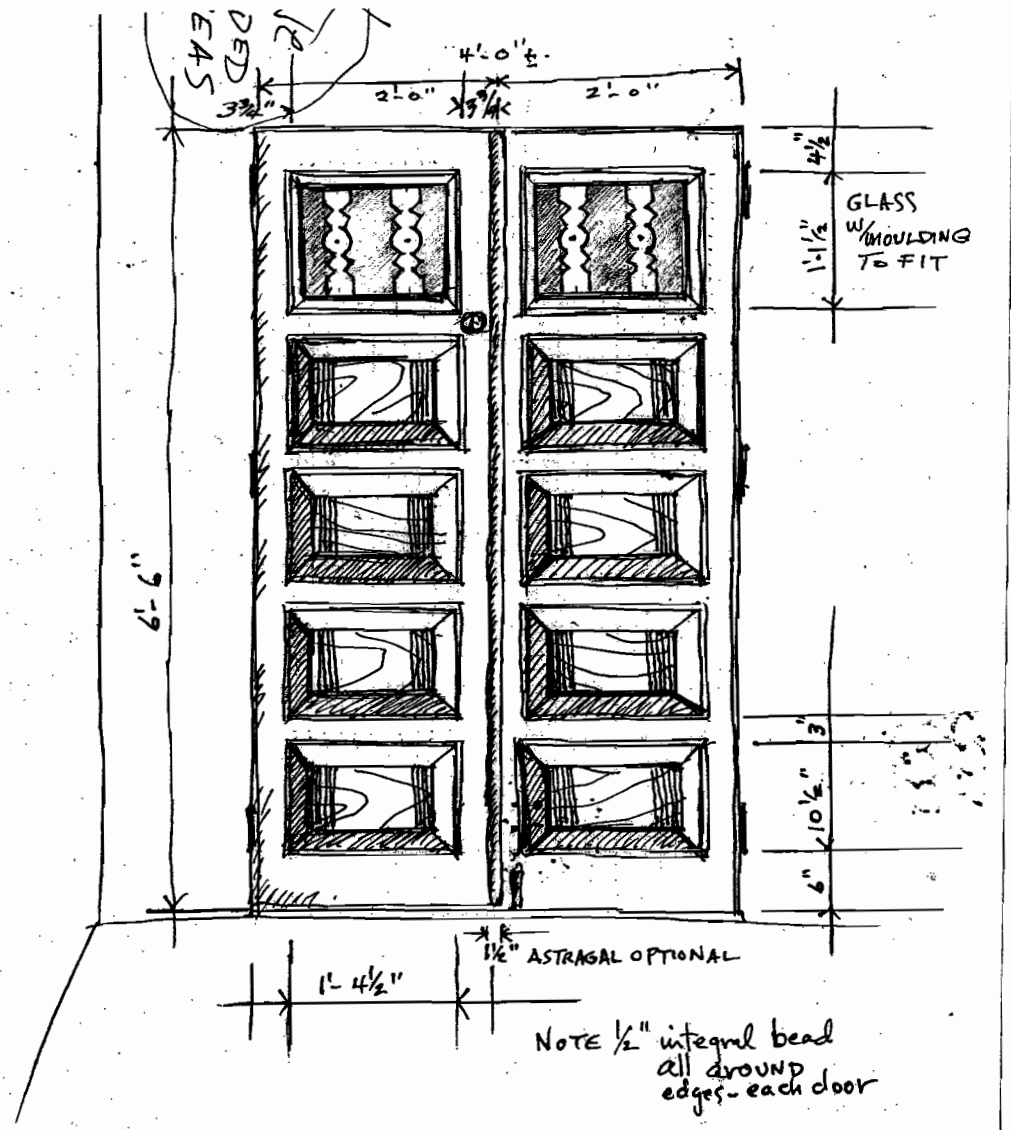 DED
EAS
4'-0"±.
2'-0"
2'-0"
3¾"
3¾
4½"
1'-1½"
GLASS
W/MOULDING
TO FIT
6'-6"
3"
10½"
6"
1½" ASTRAGAL OPTIONAL
1'-4½"
NOTE ½" integral bead
all around
edges-each door